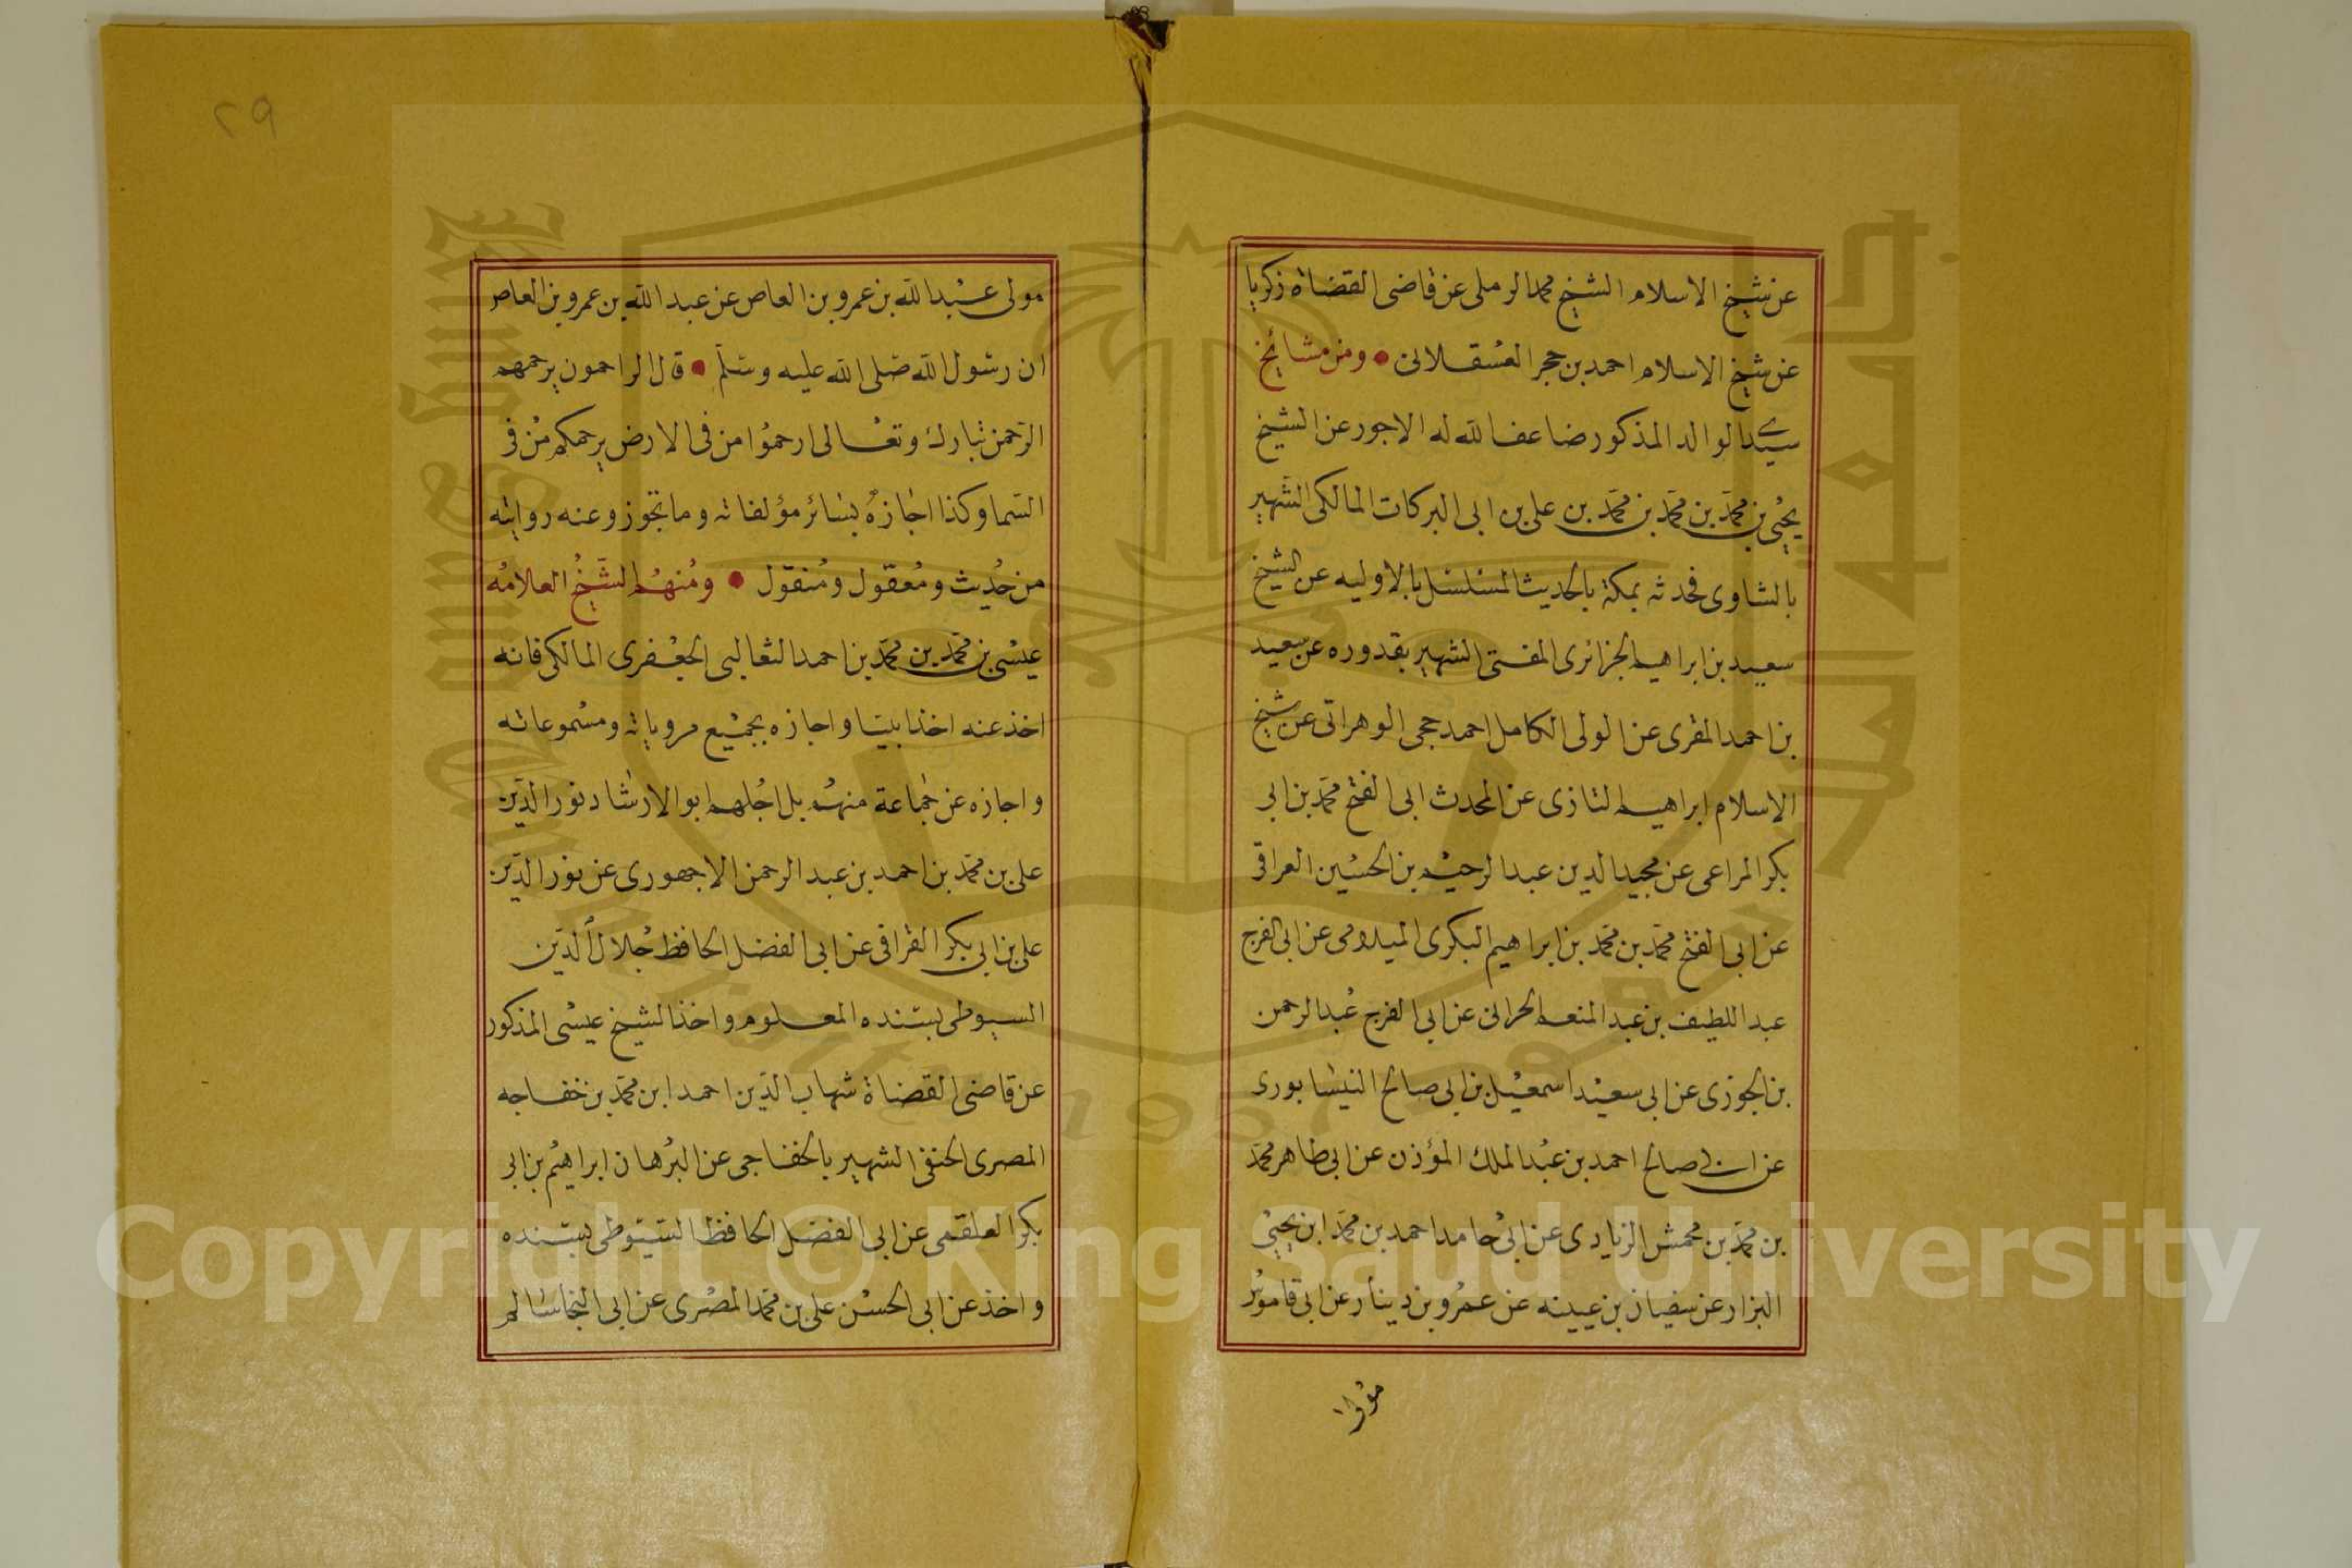 عن شيخ الاسلام الشيخ محمد الرملى عن قاضى القضاة زكريا
عن شيخ الاسلام احمد بن حجر العسقلانى • ومن مشائخ
سيدى الوالد المذكور ضاعف الله له الاجور عن الشيخ
يحيى بن محمد بن محمد بن محمد بن على بن ابى البركات المالكى الشهير
بالشاوى فحدثه بمكة بالحديث المسلسل بالاوليه عن الشيخ
سعيد بن ابراهيم الجزائرى المفتى الشهير بقدوره عن سعيد
بن احمد المقرى عن الولى الكامل احمد حجى الوهرانى عن شيخ
الاسلام ابراهيم التازى عن المحدث ابى الفتح محمد بن ابى
بكر المراعى عن مجيد الدين عبد الرحيم بن الحسين العراقى
عن ابى الفتح محمد بن محمد بن ابراهيم البكرى الميدومى عن ابى الفرج
عبد اللطيف بن عبد المنعم الحرانى عن ابى الفرج عبد الرحمن
بن الجوزى عن ابى سعيد اسمعيل بن ابى صالح النيشابورى
عن ابى صالح احمد بن عبد الملك المؤذن عن ابى طاهر محمد
بن محمد بن محمش الزيادى عن ابى حامد احمد بن محمد ابن يحيى
البزار عن سفيان بن عيينه عن عمرو بن دينار عن ابى قاموس
مولى
٢٩
مولى عبد الله بن عمرو بن العاص عن عبد الله بن عمرو بن العاص
ان رسول الله صلى الله عليه وسلم • قال الراحمون يرحمهم
الرحمن تبارك وتعالى ارحموا من فى الارض يرحمكم من فى
السما وكذا اجازه بسائر مؤلفاته وما تجوز وعنه روايته
من حديث ومعقول ومنقول • ومنهم الشيخ العلامه
عيسى بن محمد بن محمد بن احمد الثعالبى الجعفرى المالكى فانه
اخذ عنه اخذا بينا واجازه بجميع مروياته ومسموعاته
واجازه عن جماعة منهم بل اجلهم ابو الارشاد نور الدين
على بن محمد بن احمد بن عبد الرحمن الاجهورى عن نور الدين
على بن ابى بكر القرافى عن ابى الفضل الحافظ جلال الدين
السيوطى بسنده المعلوم واخذ الشيخ عيسى المذكور
عن قاضى القضاة شهاب الدين احمد ابن محمد بن خفاجه
المصرى الحنفى الشهير بالخفاجى عن البرهان ابراهيم بن ابى
بكر العلقمى عن ابى الفضل الحافظ السيوطى بسنده
واخذ عن ابى الحسن على بن محمد المصرى عن ابى النجا سالم
Copyright © King Saud University